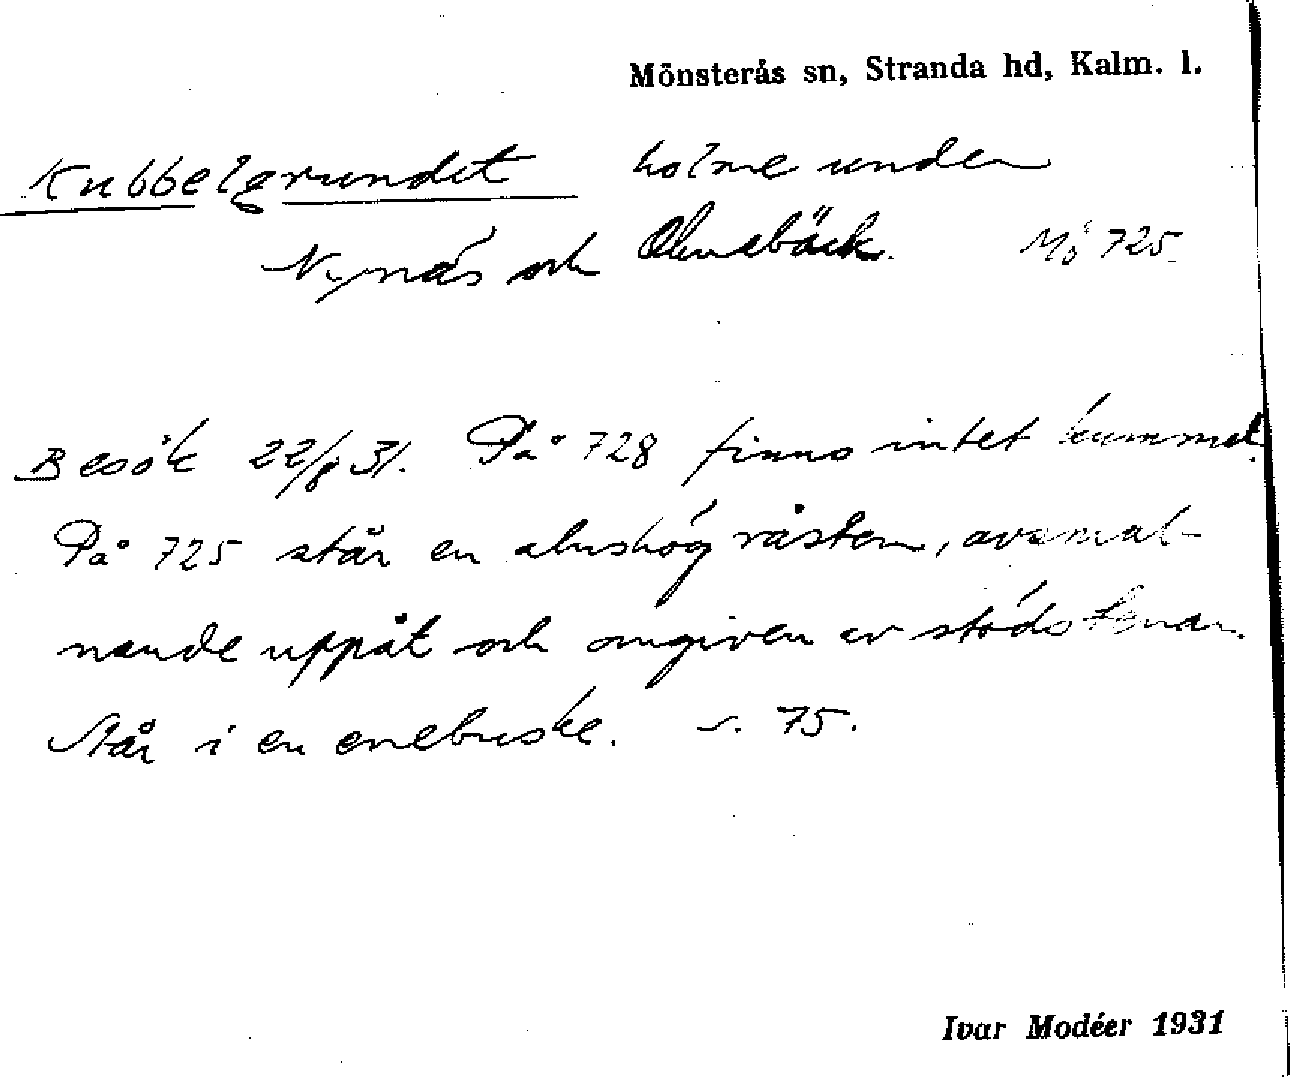 Mönsterås sn, Stranda hd, Kalm. l.
Kubbelgrundet holme under
Nynäs och Oknebäck. Mö 725.
Besök 22/8 31. På 728 finns intet kummel.
På 725 står en alnshög råsten, avsmal-
nande uppåt och omgiven av stödstenar.
Står i en enebuske. s. 75.
Ivar Modéer 1931